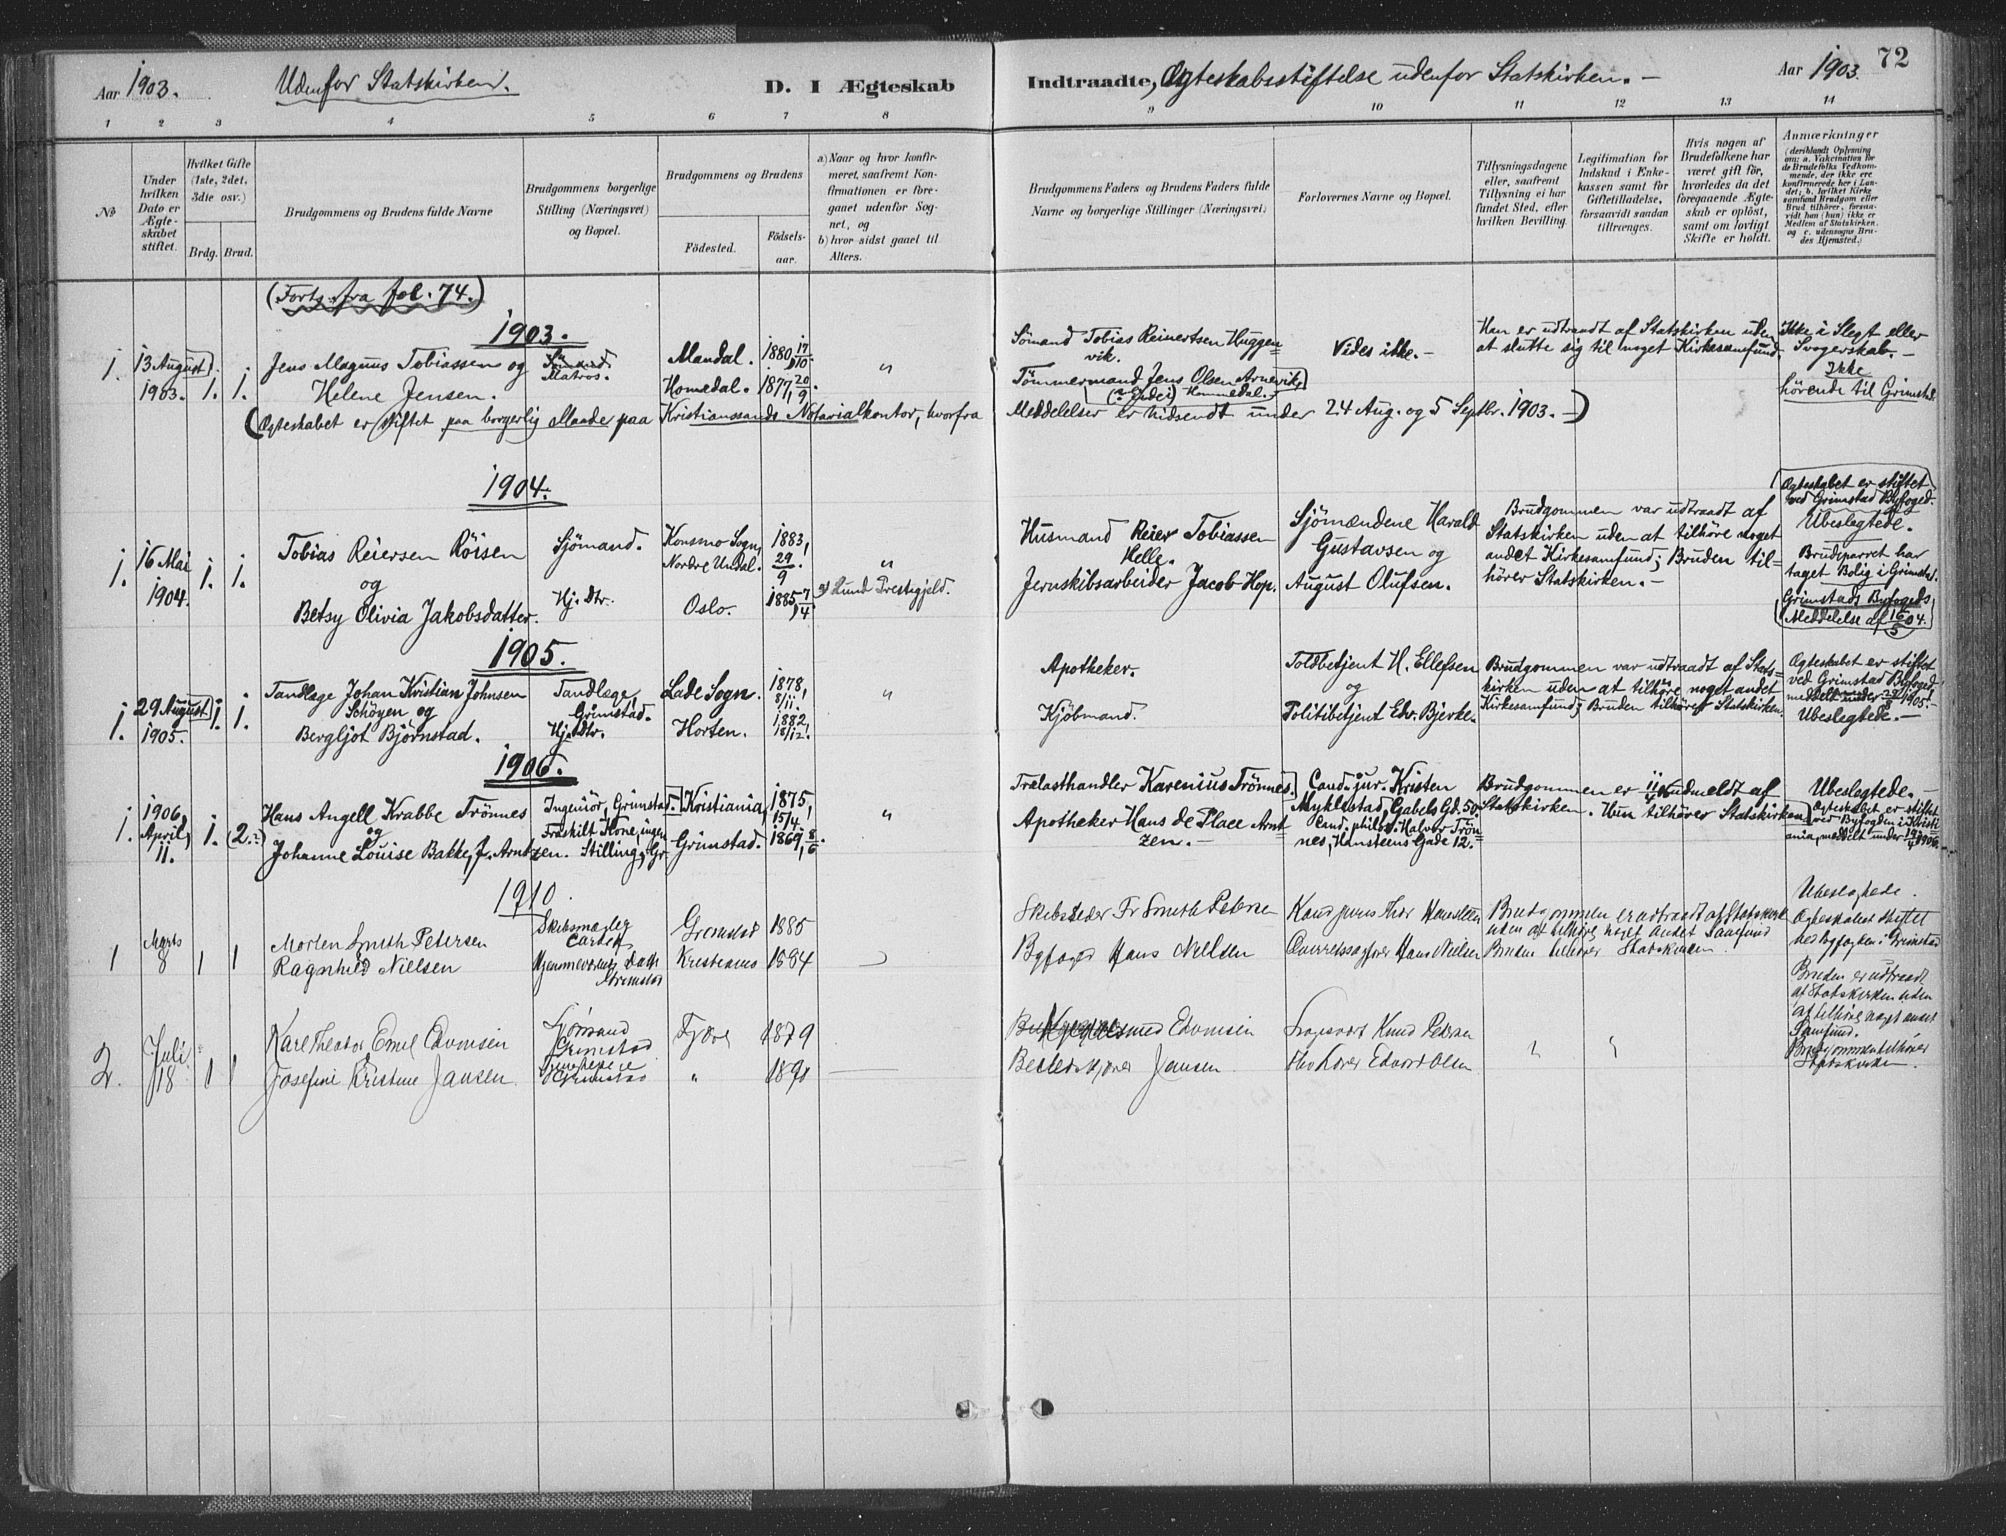 Aar 1903. Udenfor Statskirken. D. I Ægteskab
Indtraadte, Ægteskabsstiftelse udenfor Statskirken. — Aar 1903. 72
1 2 3 4 5 6 7 8 9 10 11 12 13 14
No
Under hvilken Dato er Ægteskabet stiftet.
Hvilket Gifte (1ste, 2det, 3die osv.)
Brdg. Brud.
Brudgommens og Brudens fulde Navne
Brudgommens borgerlige Stilling (Næringsvei) og Bopæl.
Brudgommens og Brudens
Fødested. Fødselsaar.
a) Naar og hvor konfirmeret, saafremt Konfirmationen er foregaaet udenfor Sognet, og
b) hvor sidst gaaet til Alters.
Brudgommens Faders og Brudens Faders fulde Navne og borgerlige Stillinger (Næringsvei)
Forlovernes Navne og Bopæl.
Tillysningsdagene eller, saafremt Tillysning ei har fundet Sted, efter hvilken Bevilling
Legitimation for Indskud i Enkekassen samt for Giftetilladelse, forsaavidt saadan tiltrænges.
Hvis nogen af Brudefolkene har været gift før, hvorledes da det foregaaende Ægteskab er opløst, samt om lovligt Skifte er holdt.
Anmærkninger
(deriblandt Oplysning om: a. Vakcination for de Brudefolks Vedkommende, der ikke ere konfirmerede her i Landet; b. hvilket Kirkesamfund Brudgom eller Brud tilhører, forsaavidt han (hun) ikke er Medlem af Statskirken, og c. udensogns Brudes Hjemsted.)
(Forts. fra fol. 74.)
1903.
1. 13 August 1903. 1. 1.
Jens Magnus Tobiassen og
Helene Jensen.
Matros.
Mandal. 1880 17/10.
Homedal. 1877, 20/9.
"
Sømand Tobias Reinertsen Huggenvik.
Tömmermand Jens Olsen Arnevik,
Hommedal.
Vides ikke. —
Han er udtraadt af Statskirken uden
at slutte sig til noget Kirkesamfund.
Ikke i Slegt eller
Svogerskab. —
Ikke
hörende til Grimstad.
(Ægteskabet er stiftet paa borgerlig Maade paa Kristianssands Notarialkontor, hvorfra
Meddelelser er hidsendt under 24 Aug. og 5 Septbr. 1903. —)
1904.
1. 16 Mai 1904. 1. 1.
Tobias Reiersen Röisen
og
Betsy Olivia Jakobsdatter.
Sjömand.
Hj. Dtr.
Konsmo Sogn,
Nordre Undal.
Oslo.
1883, 29/9.
1885, 7/4
"
a) Lund Prestegjeld.
Husmand Reier Tobiassen
Helle.
Jernskibsarbeider Jacob Hop.
Sjömændene Harald
Gustavsen og
August Olufsen.
Brudgommen var udtraadt af
Statskirken uden at tilhöre noget
andet Kirkesamfund; Bruden til-
hörer Statskirken. —
Ægteskabet er stiftet
ved Grimstad Byfoged.
Ubeslegtede.
Brudeparret har
taget Bolig i Grimstad.
Grimstads Byfogeds
Meddelelse af 16/5 04.
1905.
1. 29 August 1905. 1. 1.
Tandlæge Johan Kristian Johnsen
Schöyen og
Bergljot Björnstad.
Tandlæge,
Grimstad.
Hj. Dtr.
Lade Sogn.
Horten.
1878, 8/11.
1882, 18/12.
"
Apotheker.
Kjöbmand.
Toldbetjent H. Ellefsen
og
Politibetjent Edv. Bjerke.
Brudgommen var udtraadt af Stats-
kirken uden at tilhöre noget andet
Kirkesamfund; Bruden tilhörer Statskirken.
Ægteskabet er stiftet
ved Grimstad Byfoged,
meddelt under 29/8 1905. —
Ubeslegtede. —
1906.
1. 1906, April, 11. 1. (2. :)
Hans Angell Krabbe Trönnes
og
Johanne Louise Bakke, f. Arntzen.
Ingeniör, Grimstad.
Fraskilt Kone, ingen
Stilling, Gr.
Kristiania,
Grimstad.
1875, 15/4.
1869, 8/6.
"
Trælasthandler Karenius Trönnes.
Apotheker Hans de Place Arnt-
zen. —
Cand. jur. Kristen
Myklestad, Gabels Gd. 50.
Cand. philos. Halvor Trön-
nes, Hansteens Gade 12.
Brudgommen er 11/4 06 udmeldt af
Statskirken. Hun tilhörer Statskirken
Ubeslegtede. —
Ægteskabet er stiftet
ved Byfogden i Kristi-
ania, meddelt under 19/4 1906.
1910
1 Marts 8 1 1
Morten Smith Petersen
Ragnhild Nielsen
Skibsmægler
Grimstad
Grimstad 1885
Kristiania 1884
Skibsreder Fr Smith Petersen
Byfoged Hans Nielsen
Overretssagfører Hans Nielsen
Brudgommen er udtraadt af Statskirk
uden at tilhøre noget andet Samfund
Bruden tilhører Statskirken.
Ubeslegtede.
Ægteskabet stiftet
hos byfogden i Grimstad
2. Juli 18 1 1
Karl Theodor Emil Edvinsen
Josefine Kristine Jansen
Sjømand
Grimstad
Grimstad
Fjære 1879
"
Edvinsen
Jansen
" "
Bruden er udtraadt
af Statskirken uden
at tilhøre noget andet
Samfund.
Brudgommen tilhører
Statskirken.